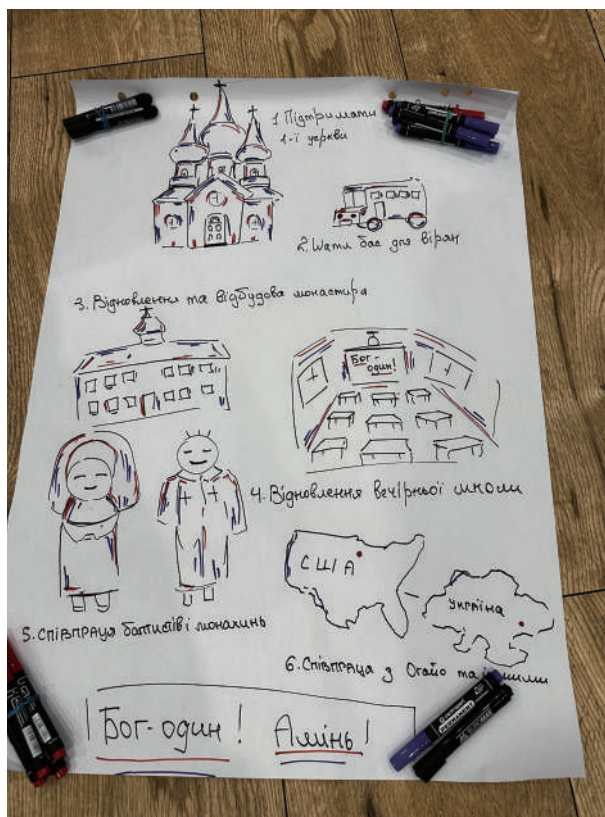 1 Підтримати
1-ї церкви
2. Мати бас для вірян
3. Відновлення та відбудова монастиря
Бог-
один!
4. Відновлення вечірньої школи
США
УКРАЇНА
5. Співпраця баптистів і монахинь
6. Співпраця з Огайо та
Бог-один! Амінь!
PERMANENT